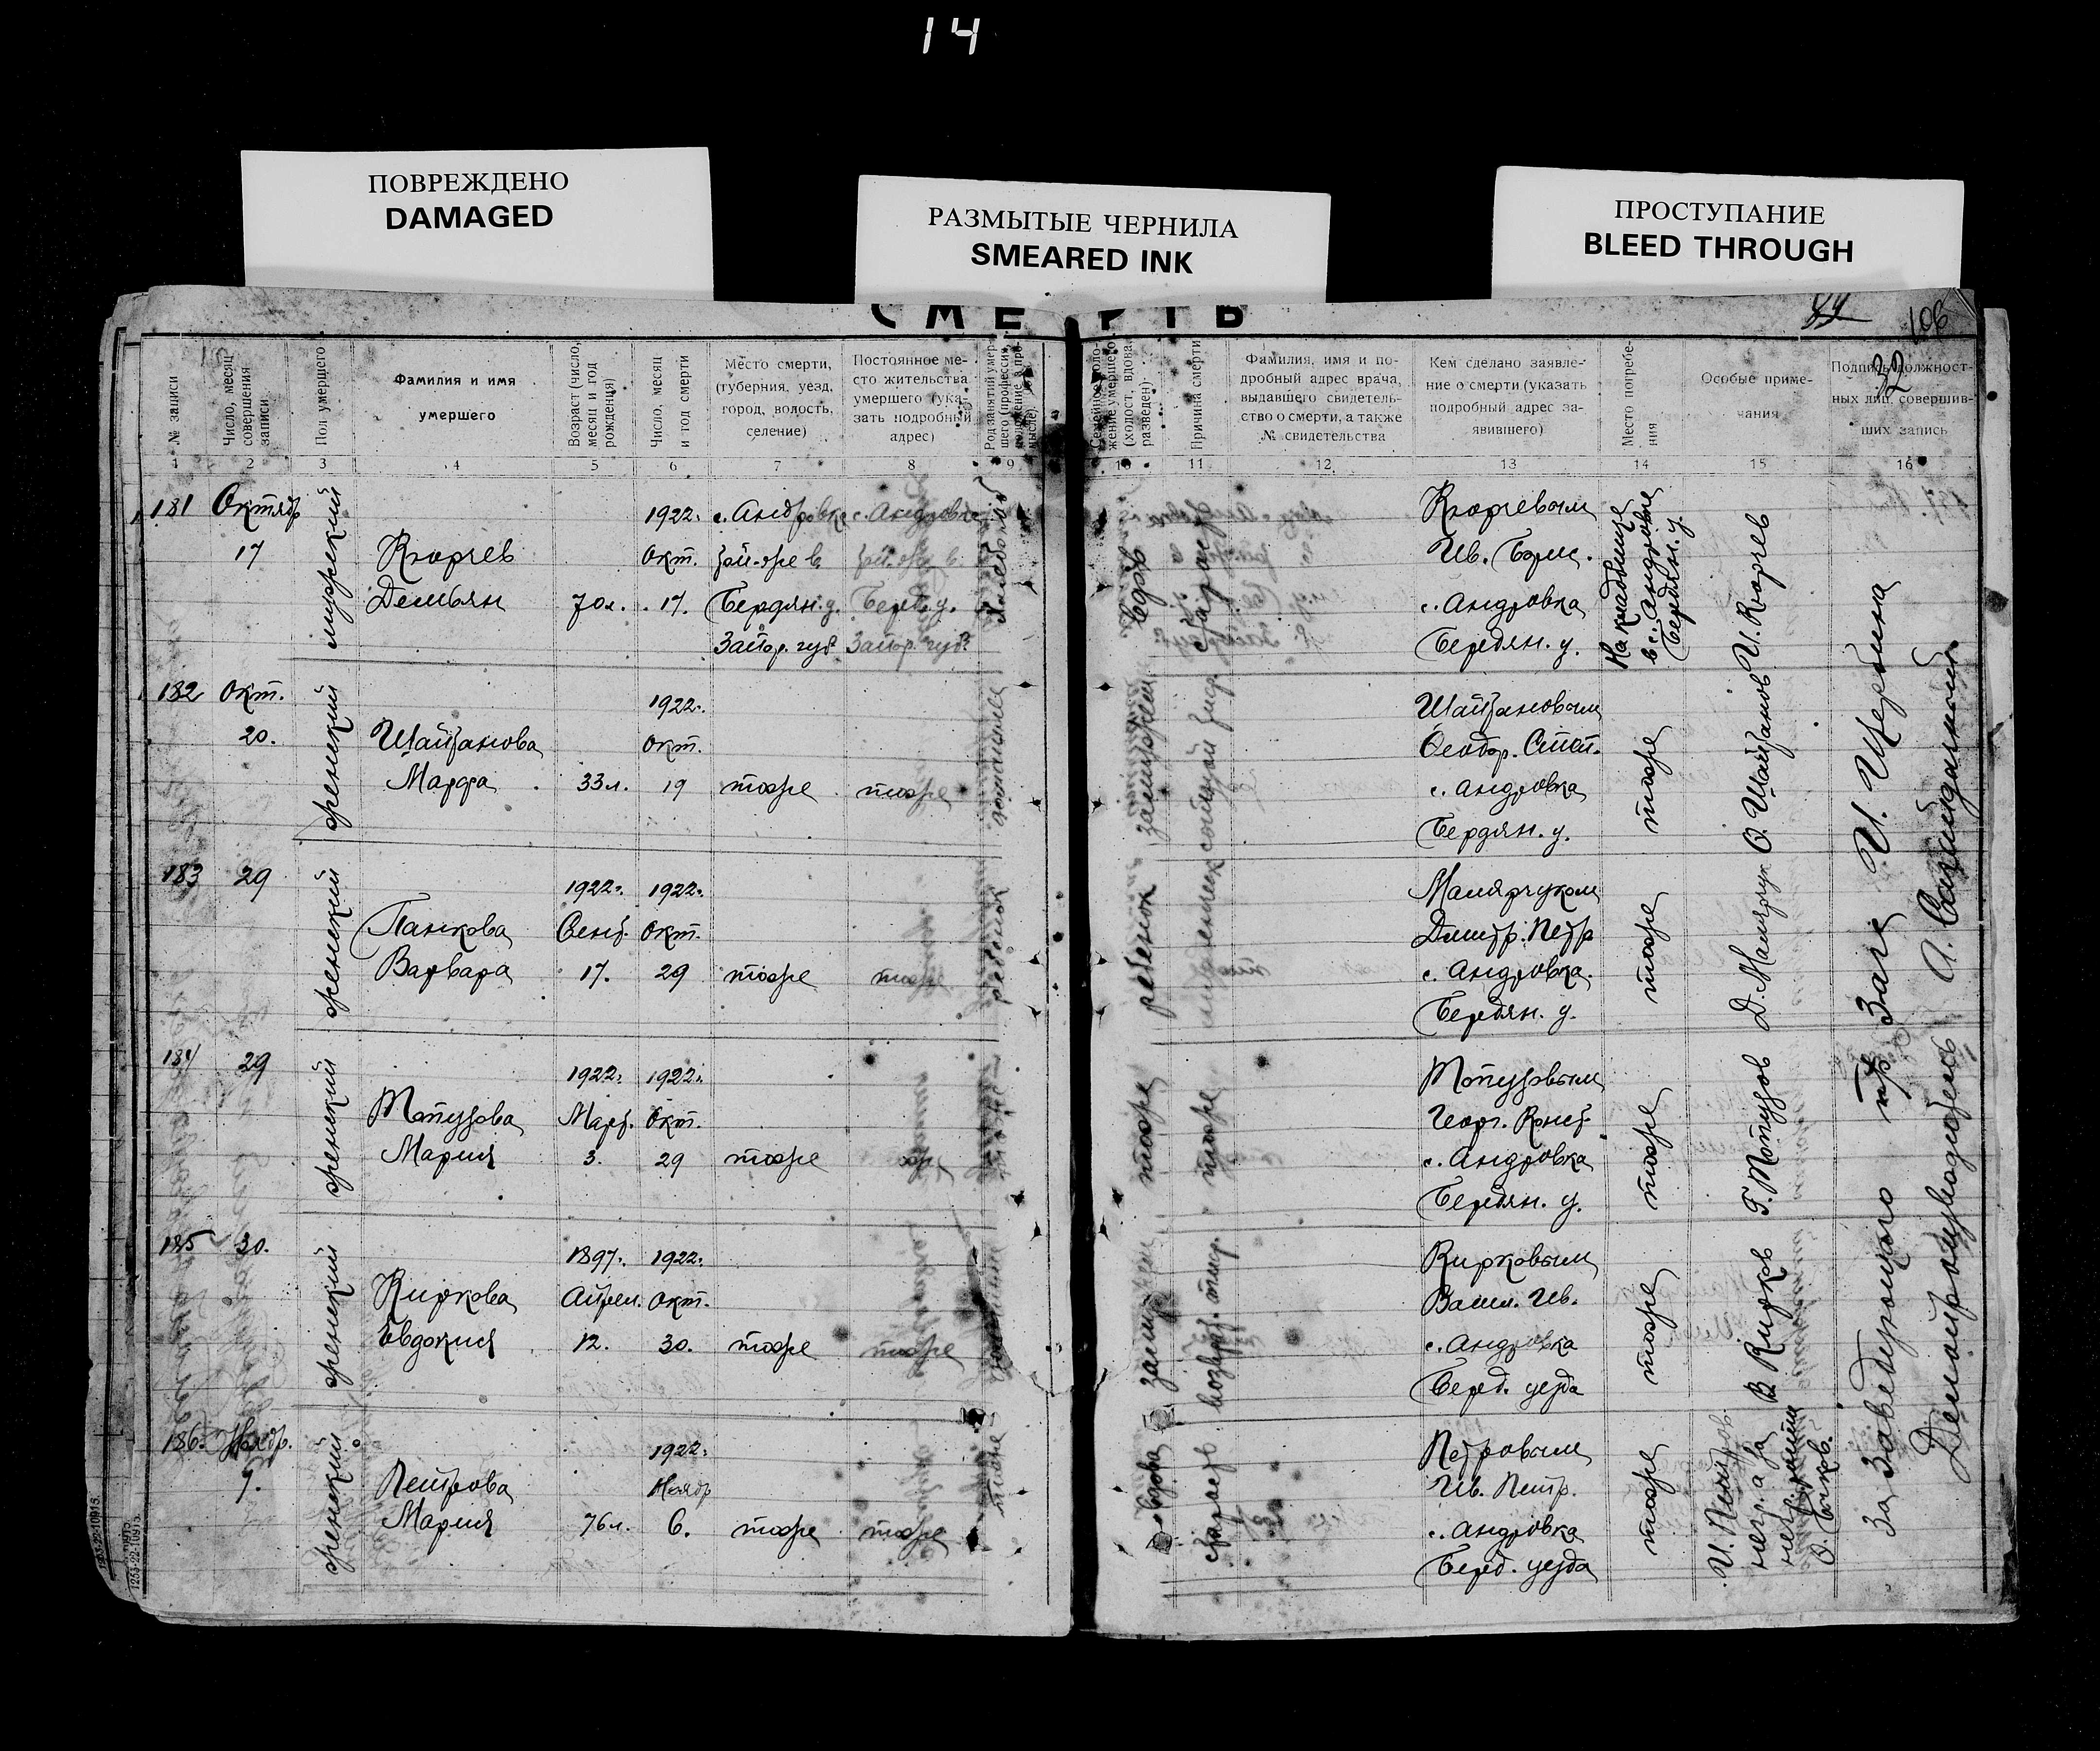 14
ПОВРЕЖДЕНО
DAMAGED
РАЗМЫТЫЕ ЧЕРНИЛА
SMEARED INK
ПРОСТУПАНИЕ
BLEED THROUGH
СМЕРТЬ
106
№ записи
Число, месяц совершения записи
Пол умершего
Фамилия и имя
умершего
Возраст (число, месяц и год рождения)
Число, месяц и год смерти
Место смерти,
(губерния, уезд,
город, волость,
селение)
Постоянное ме-
сто жительства
умершего (ука-
зать подробный
адрес)
Причина смерти
Фамилия, имя и по-
дробный адрес врача,
выдавшего свидетель-
ство о смерти, а также
№ свидетельства
Кем сделано заявле-
ние о смерти (указать
подробный адрес за-
явившего)
Место погребе-
ния
Особые приме-
чания
Подпись должност-
ных лиц, совершив-
ших запись
1 2 3 4 5 6 7 8 9 10 11 12 13 14 15 16
181 Октябр
17
мужеский
Кюрчев
Демьян
70л.
1922г.
Окт.
17.
с. Андровка
Бердян. у.
Запор. губ.
с. Андровка
Берд. у.
Запор. губ.
вдов
Кюрчевым
Ив.
с. Андровка
Бердян. у.
На кладбище
в с. Андровке
Бердян. у.
И. Кюрчев
182 Окт.
20.
женский
Шайтанова
Марфа
33л.
1922г.
Окт.
19
тоже
тоже
домашнее
замужем
Шайтановым
Феодор. Степ.
с. Андровка
Бердян. у.
тоже
Ф. Шайтанов
183 29
женский
Панкова
Варвара
1922г.
Сент.
17.
1922г.
Окт.
29
тоже
тоже
ребенок
ребенок
Малярчуком
Дмитр. Петр
с. Андровка
Бердян. у.
тоже
Д. Малярчук
184 29
женский
Топузова
Мария
1922г.
Март.
3.
1922г.
Окт.
29
тоже
тоже
тоже
тоже
Топузовым
Георг. Конст.
с. Андровка
Бердян. у.
тоже
Г. Топузов
185 30.
женский
Киркова
Евдокия
1897г.
Апрел.
12.
1922г.
Окт.
30.
тоже
тоже
замужем
возврат. тиф.
Кирковым
Васил. Ив.
с. Андровка
Берд. уезда
тоже
В Кирков
186. Ноябр.
7.
женский
Петрова
Мария
76л.
1922г.
Ноябр
6.
тоже
тоже
тоже
вдова
старость
Петровым
Ив. Петр.
с. Андровка
Берд. уезда
тоже
За Заведующего п/р Загс И. Щербина
Делопроизводитель